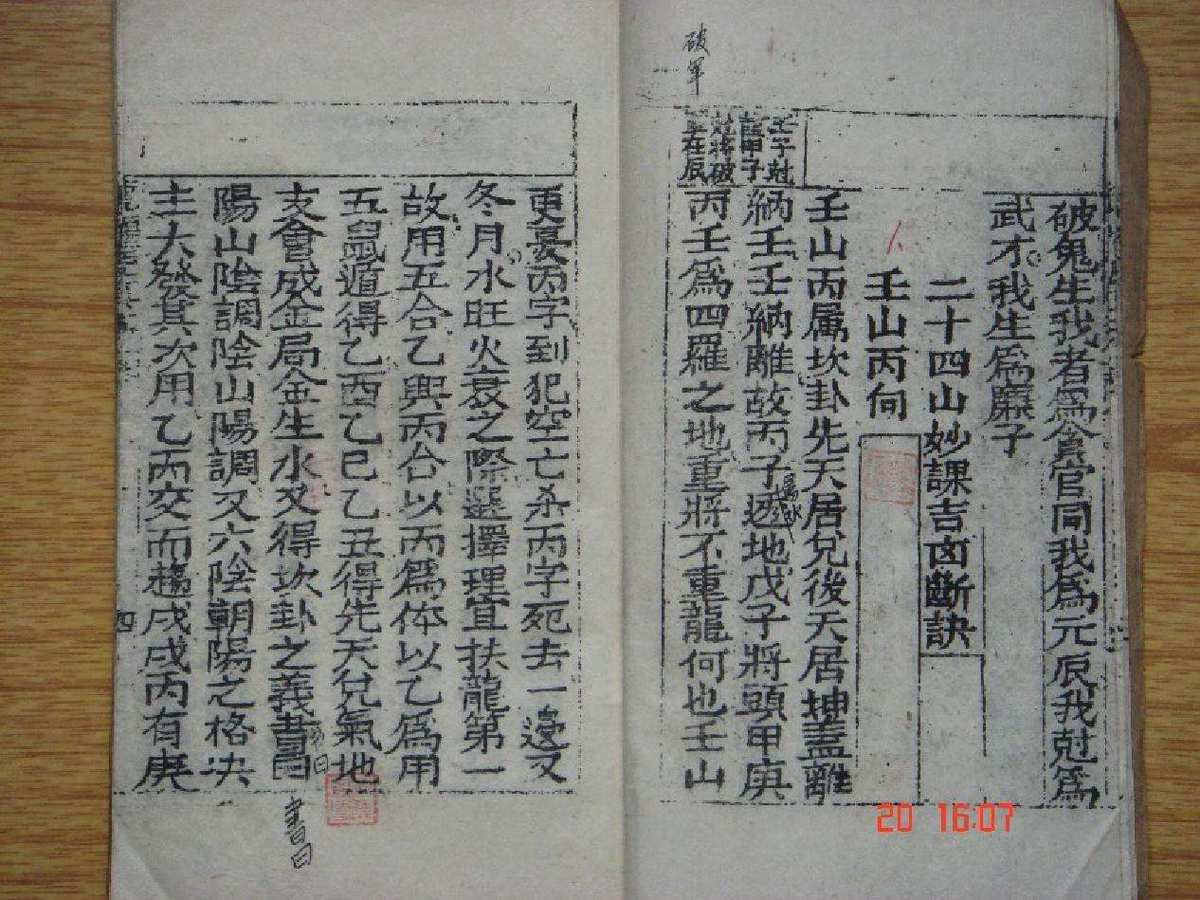 破軍
破鬼生我者為貪官同我為元辰我尅為
武才我生為廉子
二十四山妙課吉凶斷訣
壬山丙向
壬山丙属坎卦先天居兌後天居坤盖離
納壬壬納離故丙子透地戊子將頭甲庚
丙壬為四羅之地重將不重龍何也壬山
壬子尅
甲子
將破
軍在辰
更曼丙字到犯空亡杀丙字死去一邊又
冬月水旺火衰之際選擇理宜扶龍第一
故用五合乙與丙合以丙為体以乙為用
五鼠遁得乙酉乙巳乙丑得先天兌氣地
支會成金局金生水又得坎卦之義書曰
陽山陰調陰山陽調又六陰朝陽之格决
主大發其次用乙丙交而趨戌戌丙有庚
四
書曰
20 16:07